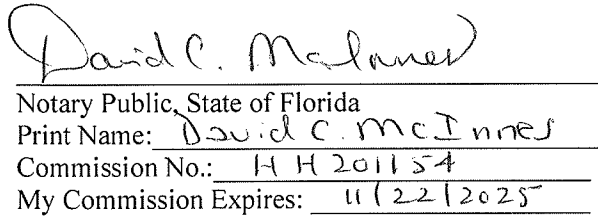 David C. McInnes
Notary Public, State of Florida
Print Name: David C. McInnes
Commission No.: HH 201154
My Commission Expires: 11/22/2025